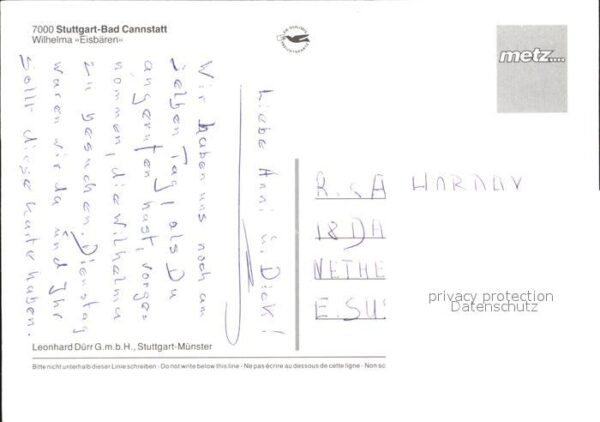 7000 Stuttgart-Bad Cannstatt
Wilhelma »Eisbären«
metz....
Liebe Anni u. Dick!
Wir haben uns noch am
selben Tag, als Du
angerufen hast, vorge-
nommen, die Wilhelma
zu besuchen. Dienstag
waren wir da und Ihr
sollt diese Karte haben.
R. & A
18 DA
NETHE
E. SUS
privacy protection
Datenschutz
Leonhard Dürr G.m.b.H., Stuttgart-Münster
Bitte nicht unterhalb dieser Linie schreiben · Do not write below this line · Ne pas écrire au dessous de cette ligne · Non sc